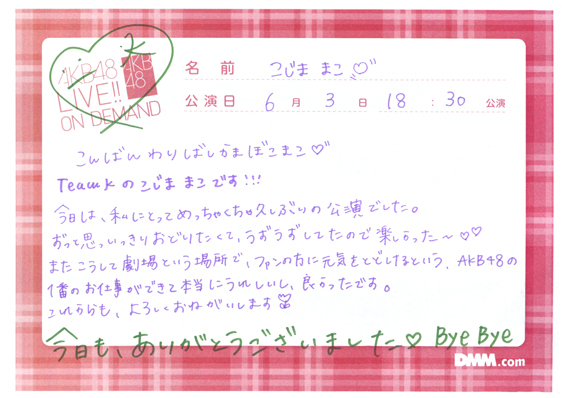 AKB48
LIVE!!
ON DEMAND
AKB
48
名 前 こじま まこ♡
公演日 6 月 3 日 18 : 30 公演
こんばんわりばしかまぼこまこ♡
TeamKのこじままこです!!!
今日は、私にとってめっちゃくちゃ久しぶりの公演でした。
ずっと思いっきりおどりたくて、うずうずしてたので楽しかった〜♡♡
またこうして劇場という場所で、ファンの方に元気をとどけるという、AKB48の
1番のお仕事ができて本当にうれしいし、良かったです。
これからも、よろしくおねがいします
今日も、ありがとうございました♡ Bye Bye
DMM.com